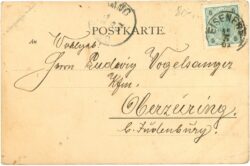 POSTKARTE
An Wohlgeb.
Herrn Ludwig Vogelsanger
Kfm.
Oberzeiring
b. Judenburg
EISENERZ